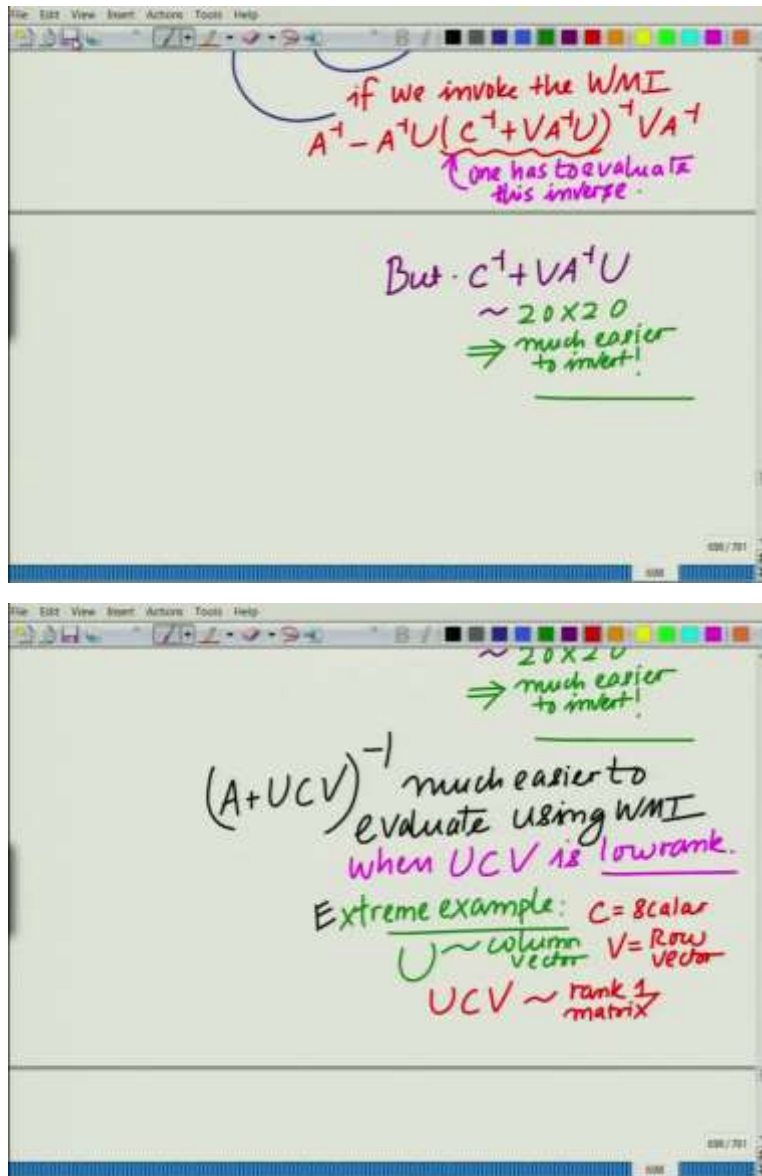 File Edit View Insert Actions Tools Help
if we invoke the WMI
A⁻¹ - A⁻¹U(C⁻¹+VA⁻¹U)⁻¹VA⁻¹
one has to evaluate
this inverse.
But. C⁻¹+VA⁻¹U
~ 20X20
⇒ much easier
to invert!
File Edit View Insert Actions Tools Help
~ 20X20
⇒ much easier
to invert!
(A+UCV)⁻¹ much easier to
evaluate using WMI
when UCV is low rank.
Extreme example: C = scalar
U ~ column vector V = Row vector
UCV ~ rank 1
matrix